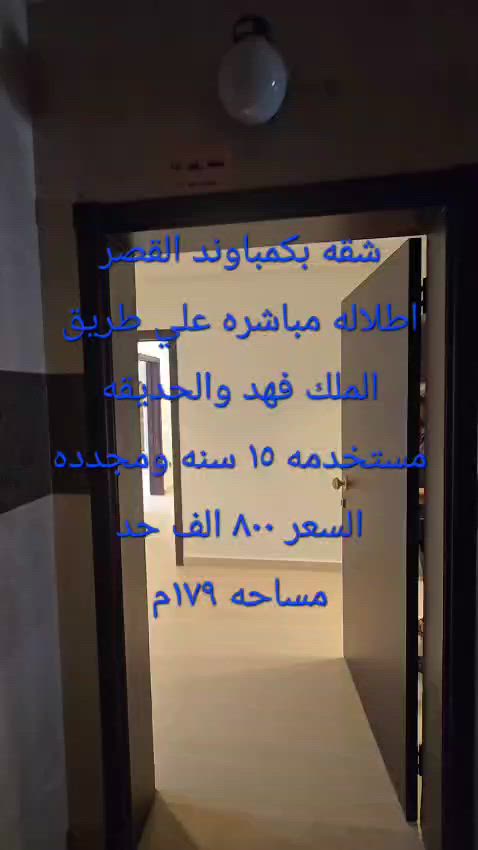 شقه بكمباوند القصر
اطلاله مباشره علي طريق
الملك فهد والحديقه
مستخدمه ١٥ سنه ومجدده
السعر ٨٠٠ الف حد
مساحه ١٧٩م